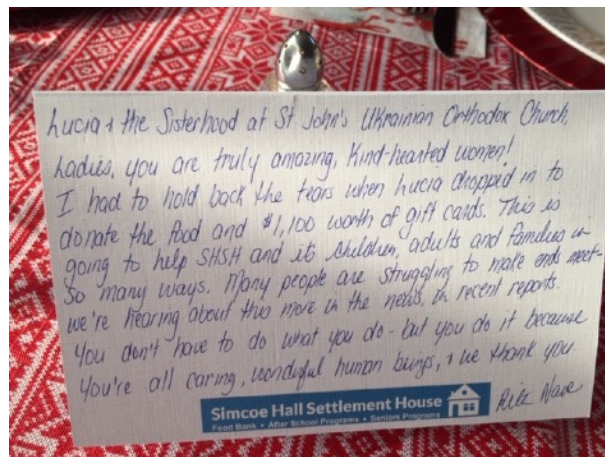 Lucia & the Sisterhood at St John's Ukrainian Orthodox Church,
Ladies, you are truly amazing, kind-hearted women!
I had to hold back the tears when Lucia dropped in to
donate the food and $1,100 worth of gift cards. This is
going to help SHSH and its children, adults and families in
so many ways. Many people are struggling to make ends meet-
we're hearing about this more in the news, in recent reports.
You don't have to do what you do - but you do it because
you're all caring, wonderful human beings, & we thank you
Simcoe Hall Settlement House
Food Bank • After School Programs • Seniors Programs